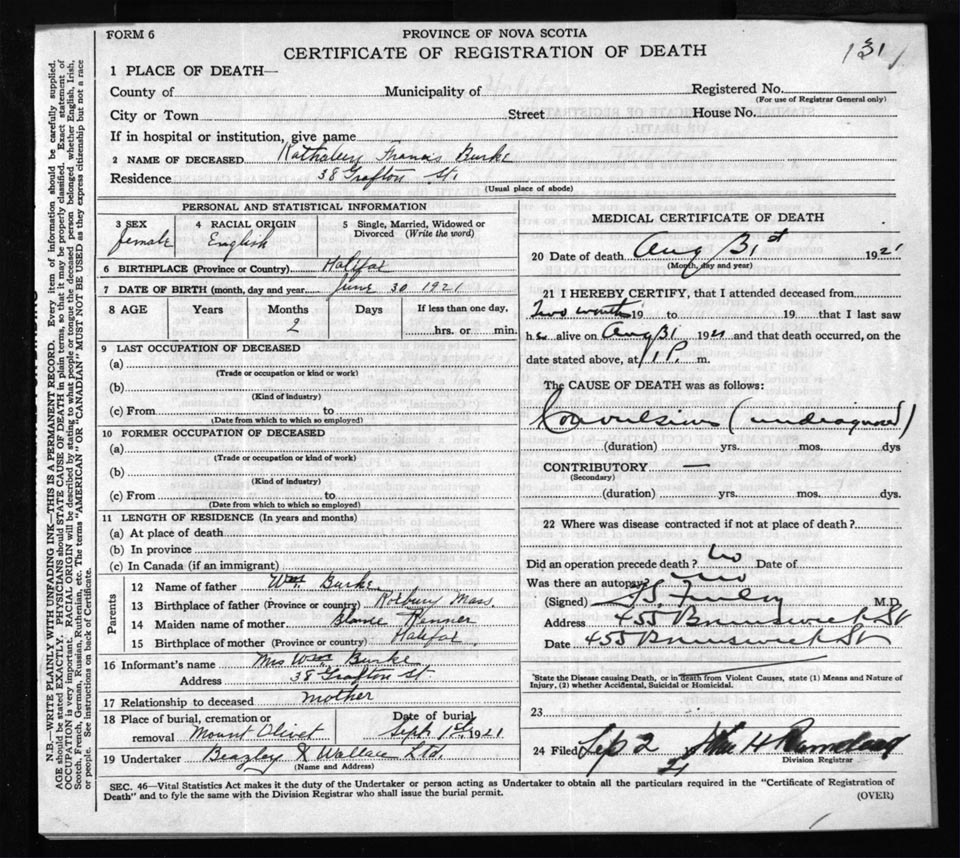 FORM 6
PROVINCE OF NOVA SCOTIA
CERTIFICATE OF REGISTRATION OF DEATH
131
1 PLACE OF DEATH—
County of Municipality of Halifax Registered No.
(For use of Registrar General only)
City or Town Street House No.
If in hospital or institution, give name
2 NAME OF DECEASED Francis Burke
Residence 38 Grafton St.
(Usual place of abode)
PERSONAL AND STATISTICAL INFORMATION
3 SEX female
4 RACIAL ORIGIN English
5 Single, Married, Widowed or Divorced (Write the word)
6 BIRTHPLACE (Province or Country) Halifax
7 DATE OF BIRTH (month, day and year) June 30 1921
8 AGE Years Months Days If less than one day,
2 hrs. or min.
9 LAST OCCUPATION OF DECEASED
(a)
(Trade or occupation or kind or work)
(b)
(Kind of industry)
(c) From to
(Date from which to which so employed)
10 FORMER OCCUPATION OF DECEASED
(a)
(Trade or occupation or kind of work)
(b)
(Kind of industry)
(c) From to
(Date from which to which so employed)
11 LENGTH OF RESIDENCE (In years and months)
(a) At place of death
(b) In province
(c) In Canada (if an immigrant)
Parents
12 Name of father Wm. Burke
13 Birthplace of father (Province or country) Roxbury Mass.
14 Maiden name of mother
15 Birthplace of mother (Province or country) Halifax
16 Informant's name Mrs Wm Burke
Address 38 Grafton St.
17 Relationship to deceased mother
18 Place of burial, cremation or removal Mount Olivet
Date of burial Sept 1st 1921
19 Undertaker & Wallace Ltd.
(Name and Address)
MEDICAL CERTIFICATE OF DEATH
20 Date of death Aug 31st 1921
(Month, day and year)
21 I HEREBY CERTIFY, that I attended deceased from
Two 19 to 19 that I last saw
h er alive on Aug 31 1921 and that death occurred, on the
date stated above, at 1 P. m.
The CAUSE OF DEATH was as follows:
Convulsions (undiagnosed)
(duration) yrs. mos. dys
CONTRIBUTORY —
(Secondary)
(duration) yrs. mos. dys.
22 Where was disease contracted if not at place of death?
Did an operation precede death? no Date of
Was there an autopsy? no
(Signed) M.D.
Address 455 Brunswick St
Date 455 Brunswick St
*State the Disease causing Death, or in death from Violent Causes, state (1) Means and Nature of
Injury, (2) whether Accidental, Suicidal or Homicidal.
23
24 Filed Sep 2 21 John H
Division Registrar
SEC. 46—Vital Statistics Act makes it the duty of the Undertaker or person acting as Undertaker to obtain all the particulars required in the "Certificate of Registration of
Death" and to fyle the same with the Division Registrar who shall issue the burial permit.
(OVER)
N.B.—WRITE PLAINLY WITH UNFADING INK—THIS IS A PERMANENT RECORD. Every item of information should be carefully supplied.
AGE should be stated EXACTLY. PHYSICIANS should STATE CAUSE OF DEATH in plain terms, so that it may be properly classified. Exact statement of
OCCUPATION is very important. RACIAL ORIGIN will be described by stating to what people or tongue the deceased person belonged whether English, Irish,
Scotch, French, German, Russian, Ruthenian, etc. The terms "AMERICAN" OR "CANADIAN" MUST NOT BE USED as they express citizenship but not a race
or people. See instructions on back of Certificate.